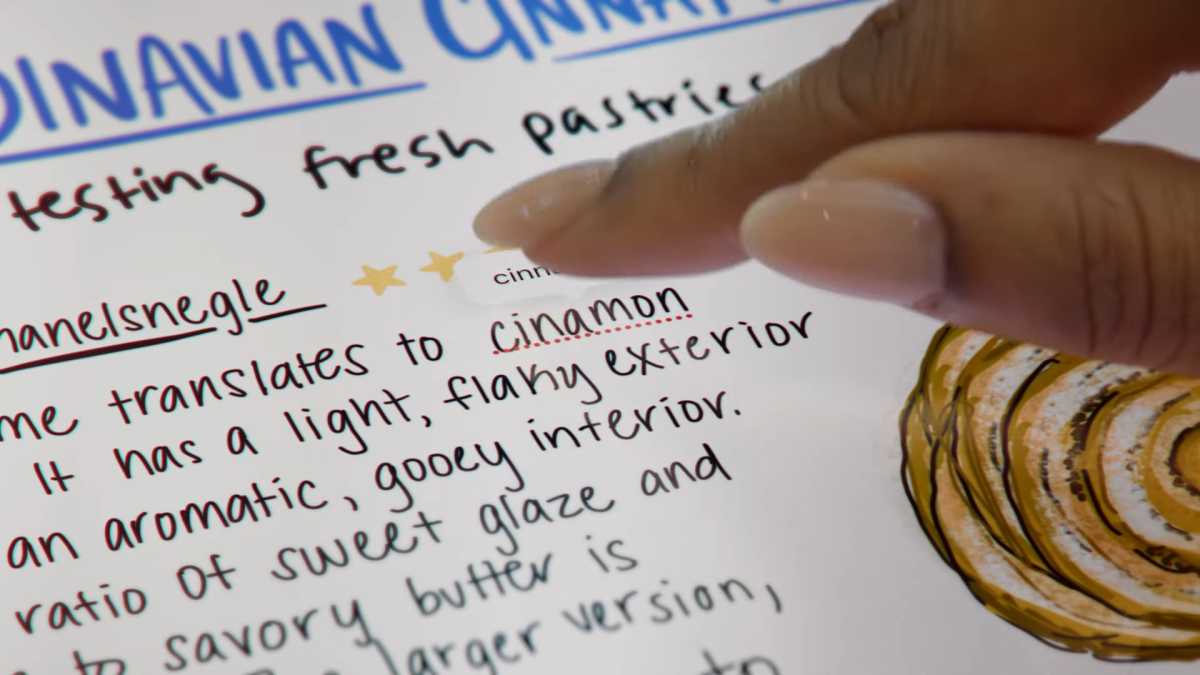 DINAVIAN CINNAM
testing fresh pastries
hanelsnegle
cinn
me translates to cinamon
It has a light, flaky exterior
an aromatic, gooey interior.
ratio of sweet glaze and
to savory butter is
larger version,
to